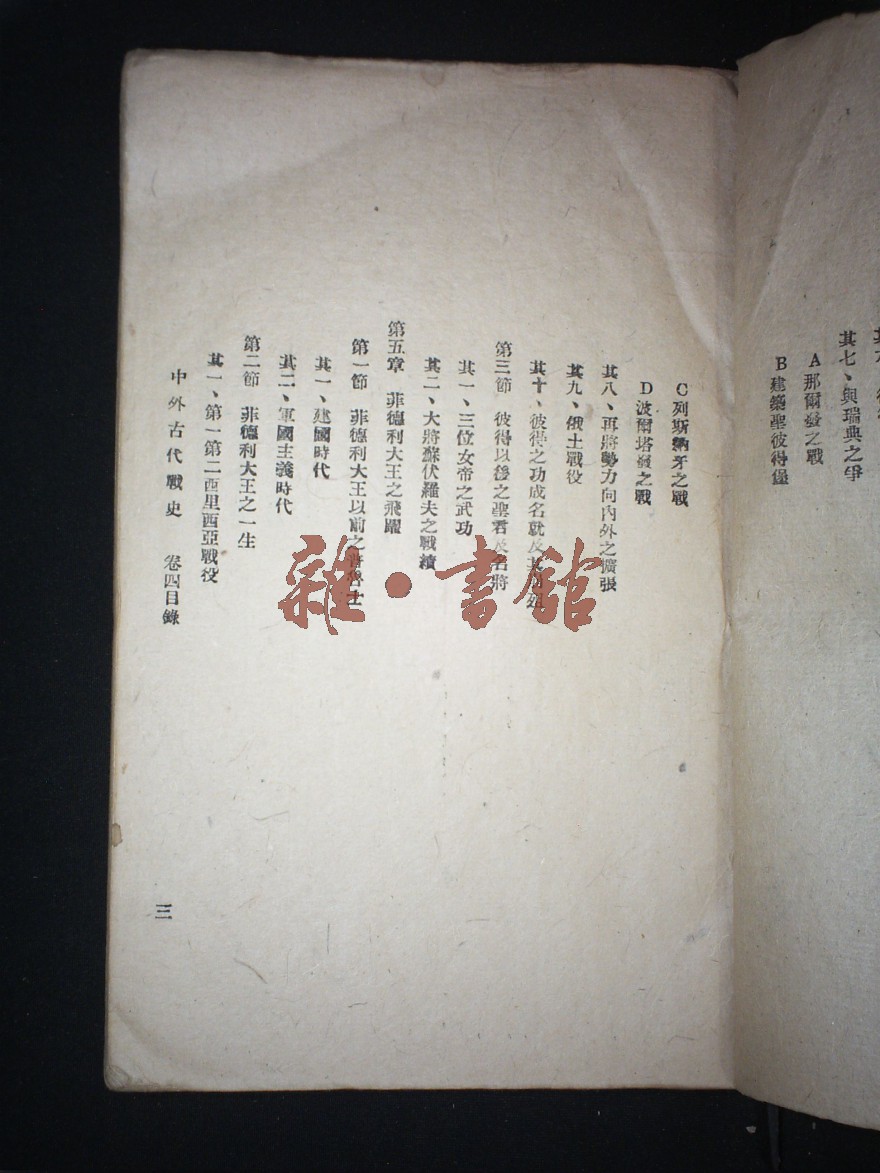 其七、與瑞典之爭
A那爾發之戰
B建築聖彼得堡
C列斯納牙之戰
D波爾塔發之戰
其八、再將勢力向內外之擴張
其九、俄土戰役
其十、彼得之功成名就及其
第三節 彼得以後之聖君及名將
其一、三位女帝之武功
其二、大將蘇伏羅夫之戰績
第五章 菲德利大王之飛躍
第一節 菲德利大王以前之普魯士
其一、建國時代
其二、軍國主義時代
第二節 菲德利大王之一生
其一、第一第二西里西亞戰役
中外古代戰史 卷四目錄
三
雜·書館